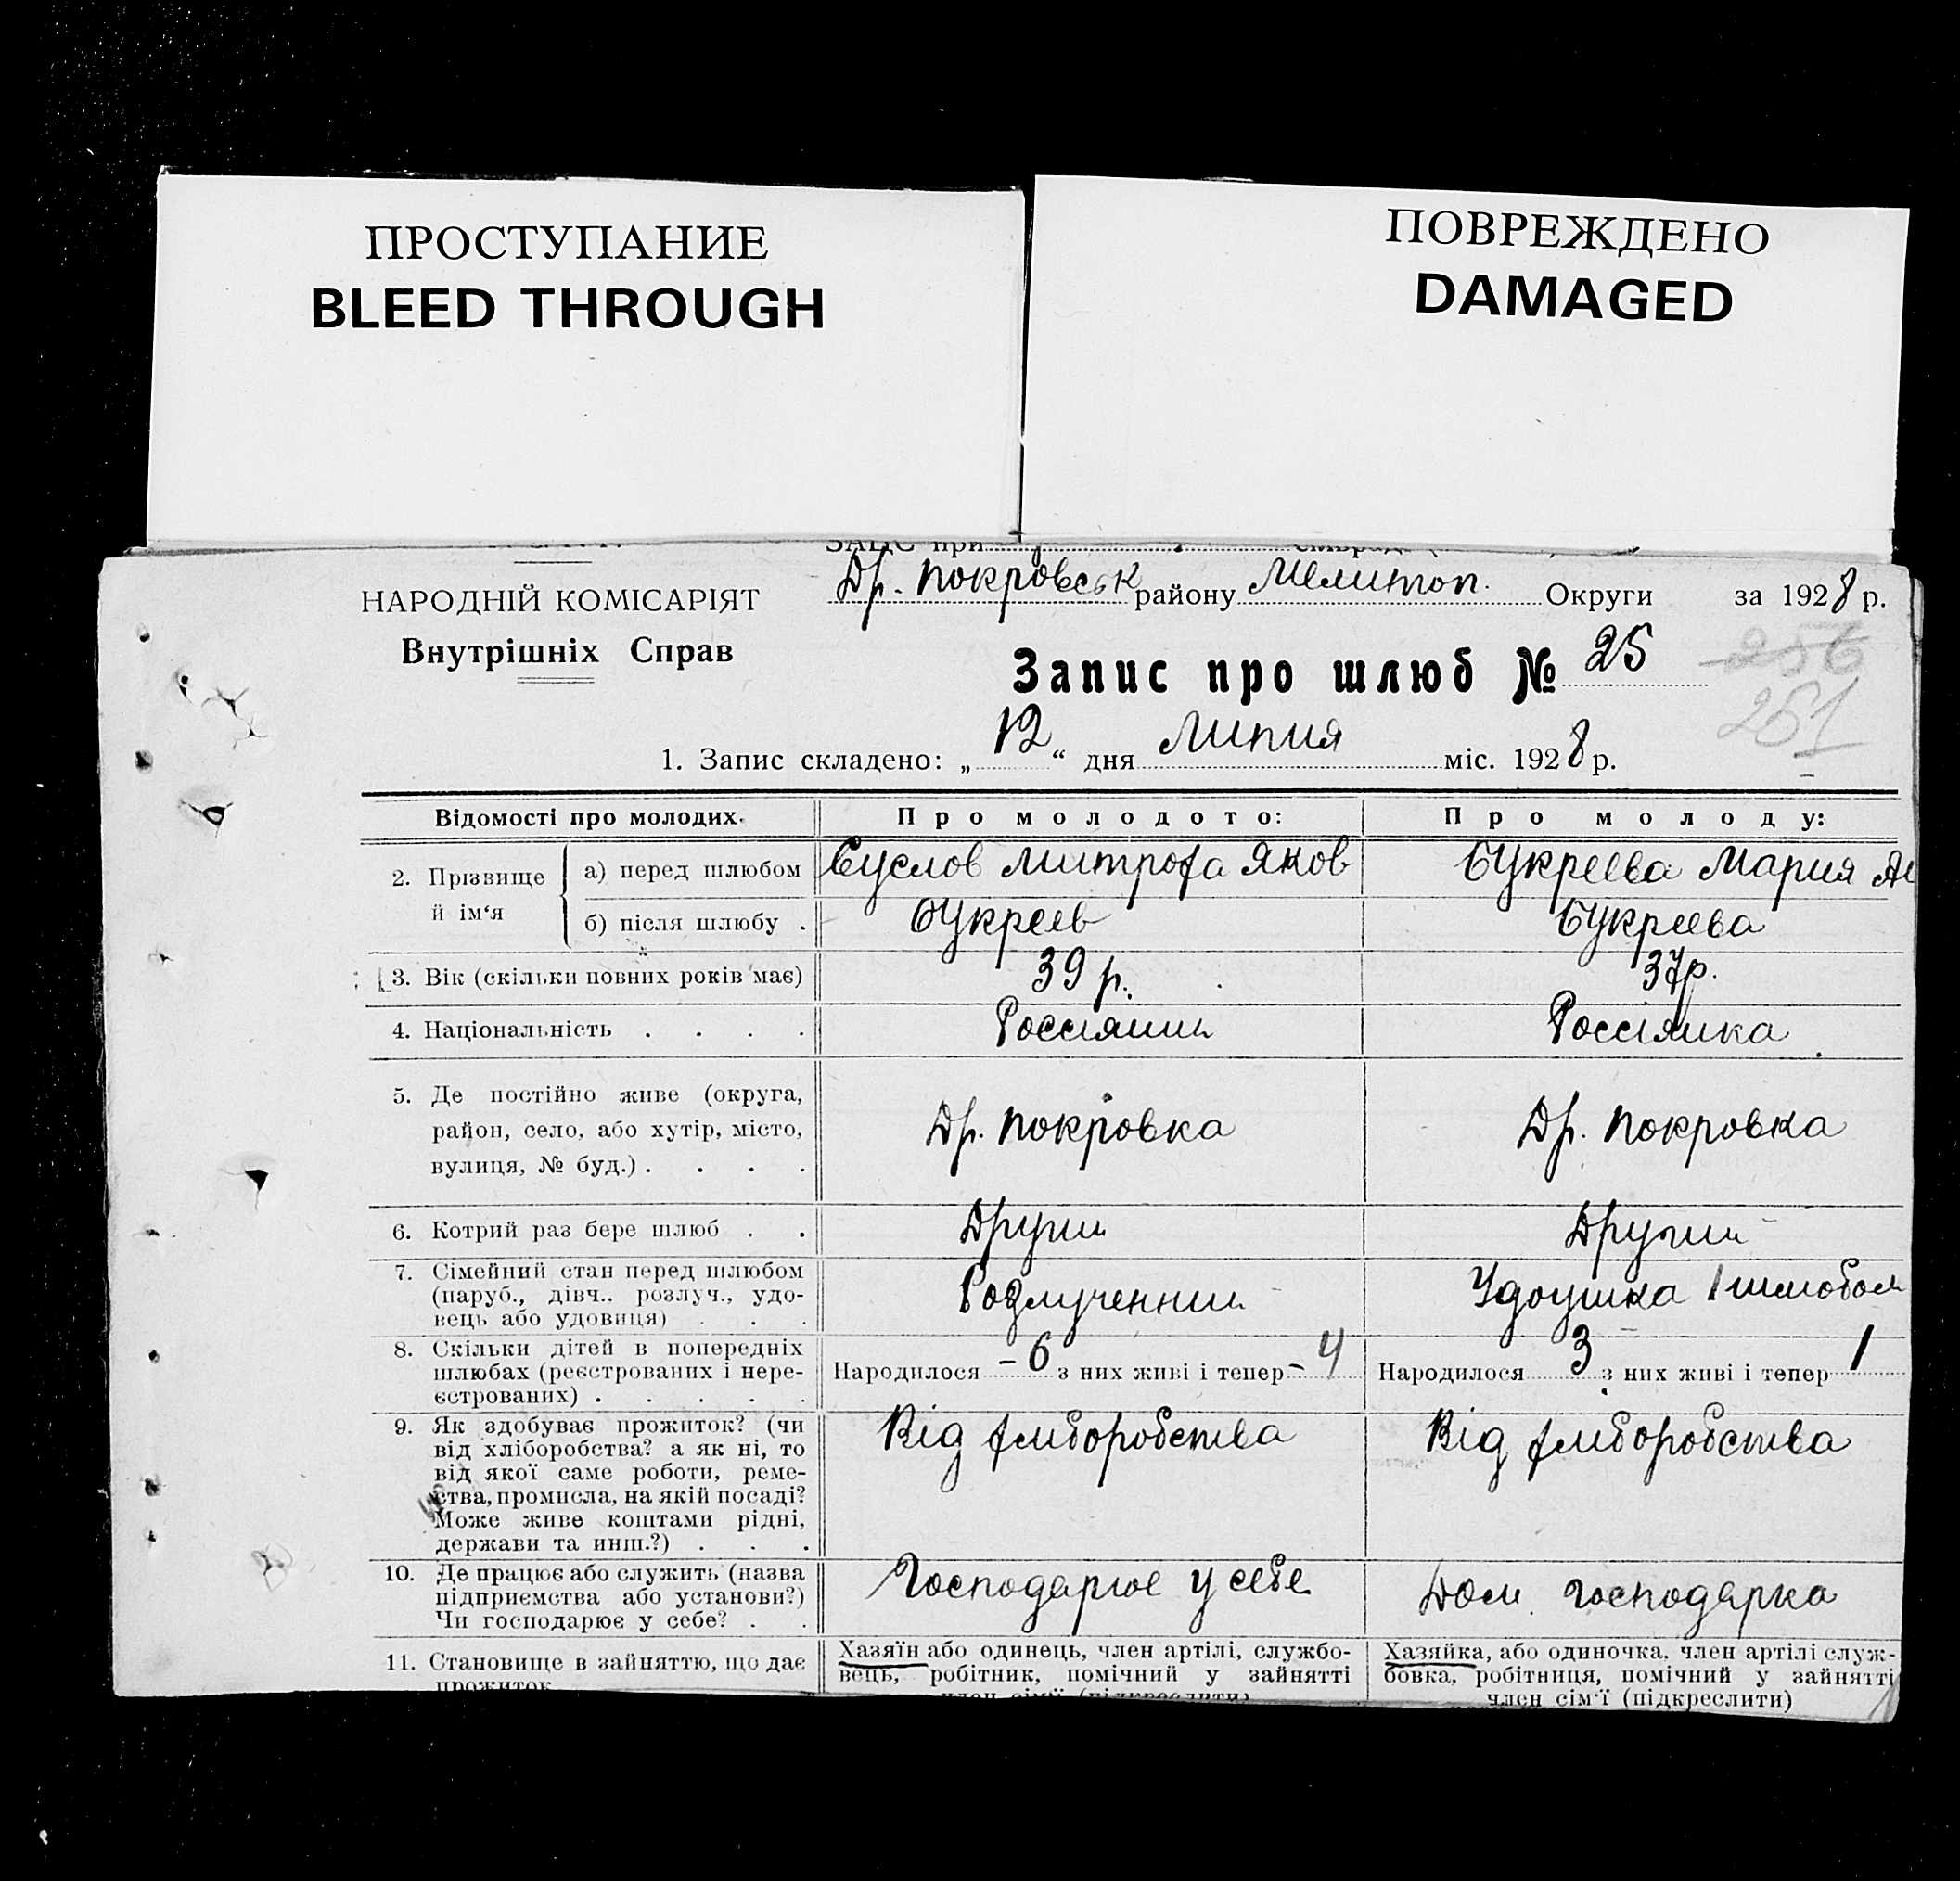 ПРОСТУПАНИЕ
BLEED THROUGH
ПОВРЕЖДЕНО
DAMAGED
ЗАЦС при
НАРОДНІЙ КОМІСАРІЯТ
Внутрішніх Справ
Др. Покровськ району Мелитоп. Округи за 1928 р.
Запис про шлюб № 25
256
251
1. Запис складено: „12“ дня Липня міс. 1928 р.
Відомості про молодих. Про молодого: Про молоду:
2. Прізвище й ім‘я
а) перед шлюбом Суслов Митрофа Яков Букреева Мария
б) після шлюбу . Букреев Букреева
3. Вік (скільки повних років має) 39 р. 37 р.
4. Національність . . . . Россіянин Россіянка
5. Де постійно живе (округа,
район, село, або хутір, місто,
вулиця, № буд.) . . . .
Др. Покровка Др. Покровка
6. Котрий раз бере шлюб . . Другий Другий
7. Сімейний стан перед шлюбом
(паруб., дівч.. розлуч., удо-
вець або удовиця) . . .
Розлученний Удоушка
8. Скільки дітей в попередніх
шлюбах (реєстрованих і нере-
єстрованих) . . . . .
Народилося -6 з них живі і тепер -4 Народилося 3 з них живі і тепер 1
9. Як здобуває прожиток? (чи
від хліборобства? а як ні, то
від якої саме роботи, реме-
ства, промисла, на якій посаді?
Може живе коштами рідні,
держави та инш.?) . . .
Від хліборобства Від хліборобства
10. Де працює або служить (назва
підприємства або установи?)
Чи господарює у себе? . .
Господарює у себе Дом. господарка
11. Становище в зайняттю, що дає
прожиток
Хазяїн або одинець, член артілі, службо-
вець, робітник, помічний у зайнятті
член сім'ї (підкреслити)
Хазяйка, або одиночка, член артілі служ-
бовка, робітниця, помічний у зайнятті
член сім'ї (підкреслити)